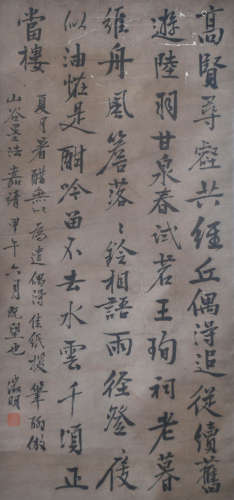 高賢尋壑共經丘偶得追從續舊
遊陸羽甘泉春試茗王珣祠老暮
維舟風簷落〻鈴相語雨徑登
似油恠是酣吟留不去水雲千頃正
當樓
夏月暑酷無以為遣偶得佳紙援筆倣
山谷墨法嘉靖甲午六月既望也 徵明